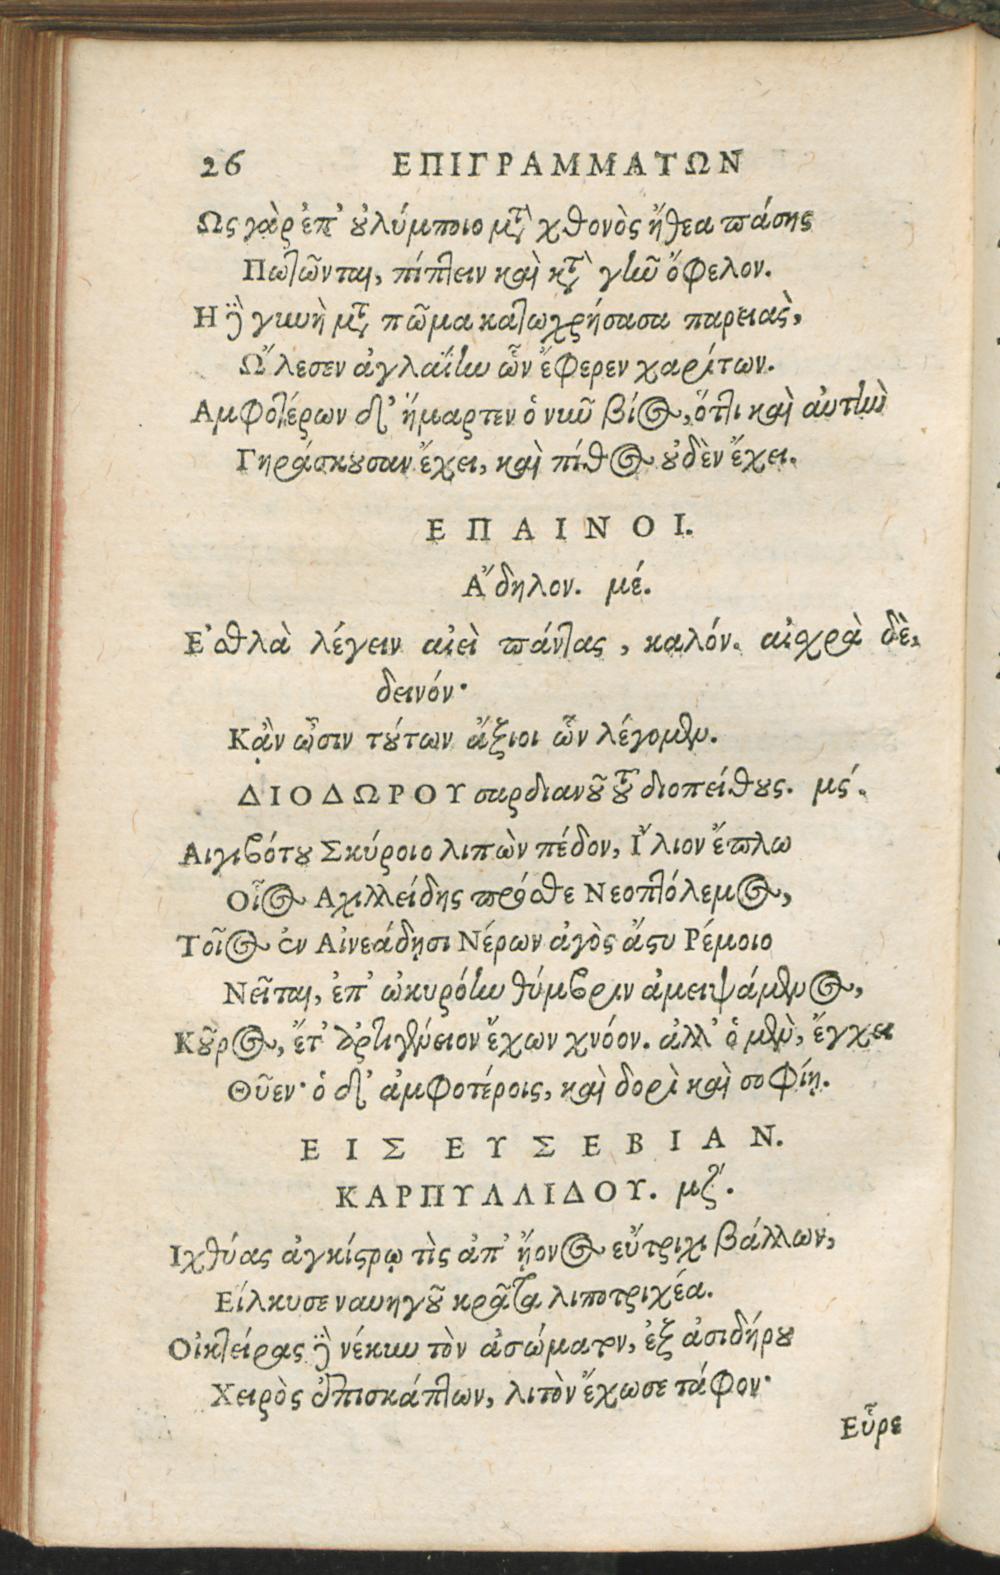 26 ΕΠΙΓΡΑΜΜΑΤΩΝ
Ως γὰρ ἐπ' ȣ̓λύμποιο μτ̀ χθονὸς ἤθεα πάσης
Πωτῶνται, πίπτειν καὶ κτ̀ γlῦ ὄφελον.
Η ἣ γυνὴ μτ̀ πῶμα κατωχρήσασα παρειὰς,
Ὤλεσεν ἀγλαΐlω ὧν ἔφερεν χαρίτων.
Αμφοτέρων δ' ἥμαρτεν ὁ νιῦ βίος, ὅτι καὶ αὐτlὼ
Γηράσκȣσαν ἔχει, καὶ πίθος ȣ̓δὲν ἔχει.
ΕΠΑΙΝΟΙ.
Ἄδηλον. μέ.
Ἐσθλὰ λέγειν αἰεὶ πάντας, καλόν. αἰσχρὰ δὲ,
δεινόν·
Κᾂν ὦσιν τȣ́των ἄξιοι ὧν λέγομεν.
ΔΙΟΔΩΡΟΥ σαρδιανȣ͂ τȣ͂ διοπείθȣς. μς́.
Αιγιβότȣ Σκύροιο λιπὼν πέδον, Ἴλιον ἔπλω
Οἷος Αχιλλείδης πρόσθε Νεοπτόλεμος,
Τοῖος ἐν Αἰνεάδῃσι Νέρων ἀγὸς ἄστυ Ρέμοιο
Νεῖται, ἐπ' ὠκυρόlω θύμβριν ἀμειψάμενος,
Κȣ͂ρος, ἔτ' ἀρτιγένειον ἔχων χνόον. ἀλλ' ὁ μὲν, ἔγχει
Θῦεν· ὁ δ' ἀμφοτέροις, καὶ δορὶ καὶ σοφίῃ.
ΕΙΣ ΕΥΣΕΒΙΑΝ.
ΚΑΡΠΥΛΛΙΔΟΥ. μζ́.
Ιχθύας ἀγκίστρῳ τὶς ἀπ' ᾔονος εὔτριχι βάλλων,
Εἵλκυσε ναυηγȣ͂ κρᾶτα λιποτριχέα.
Οἰκτείρας ἣ νέκυν τὸν ἀσώματον, ἐξ ἀσιδήρȣ
Χειρὸς ἐπισκάπτων, λιτὸν ἔχωσε τάφον·
Εὗρε